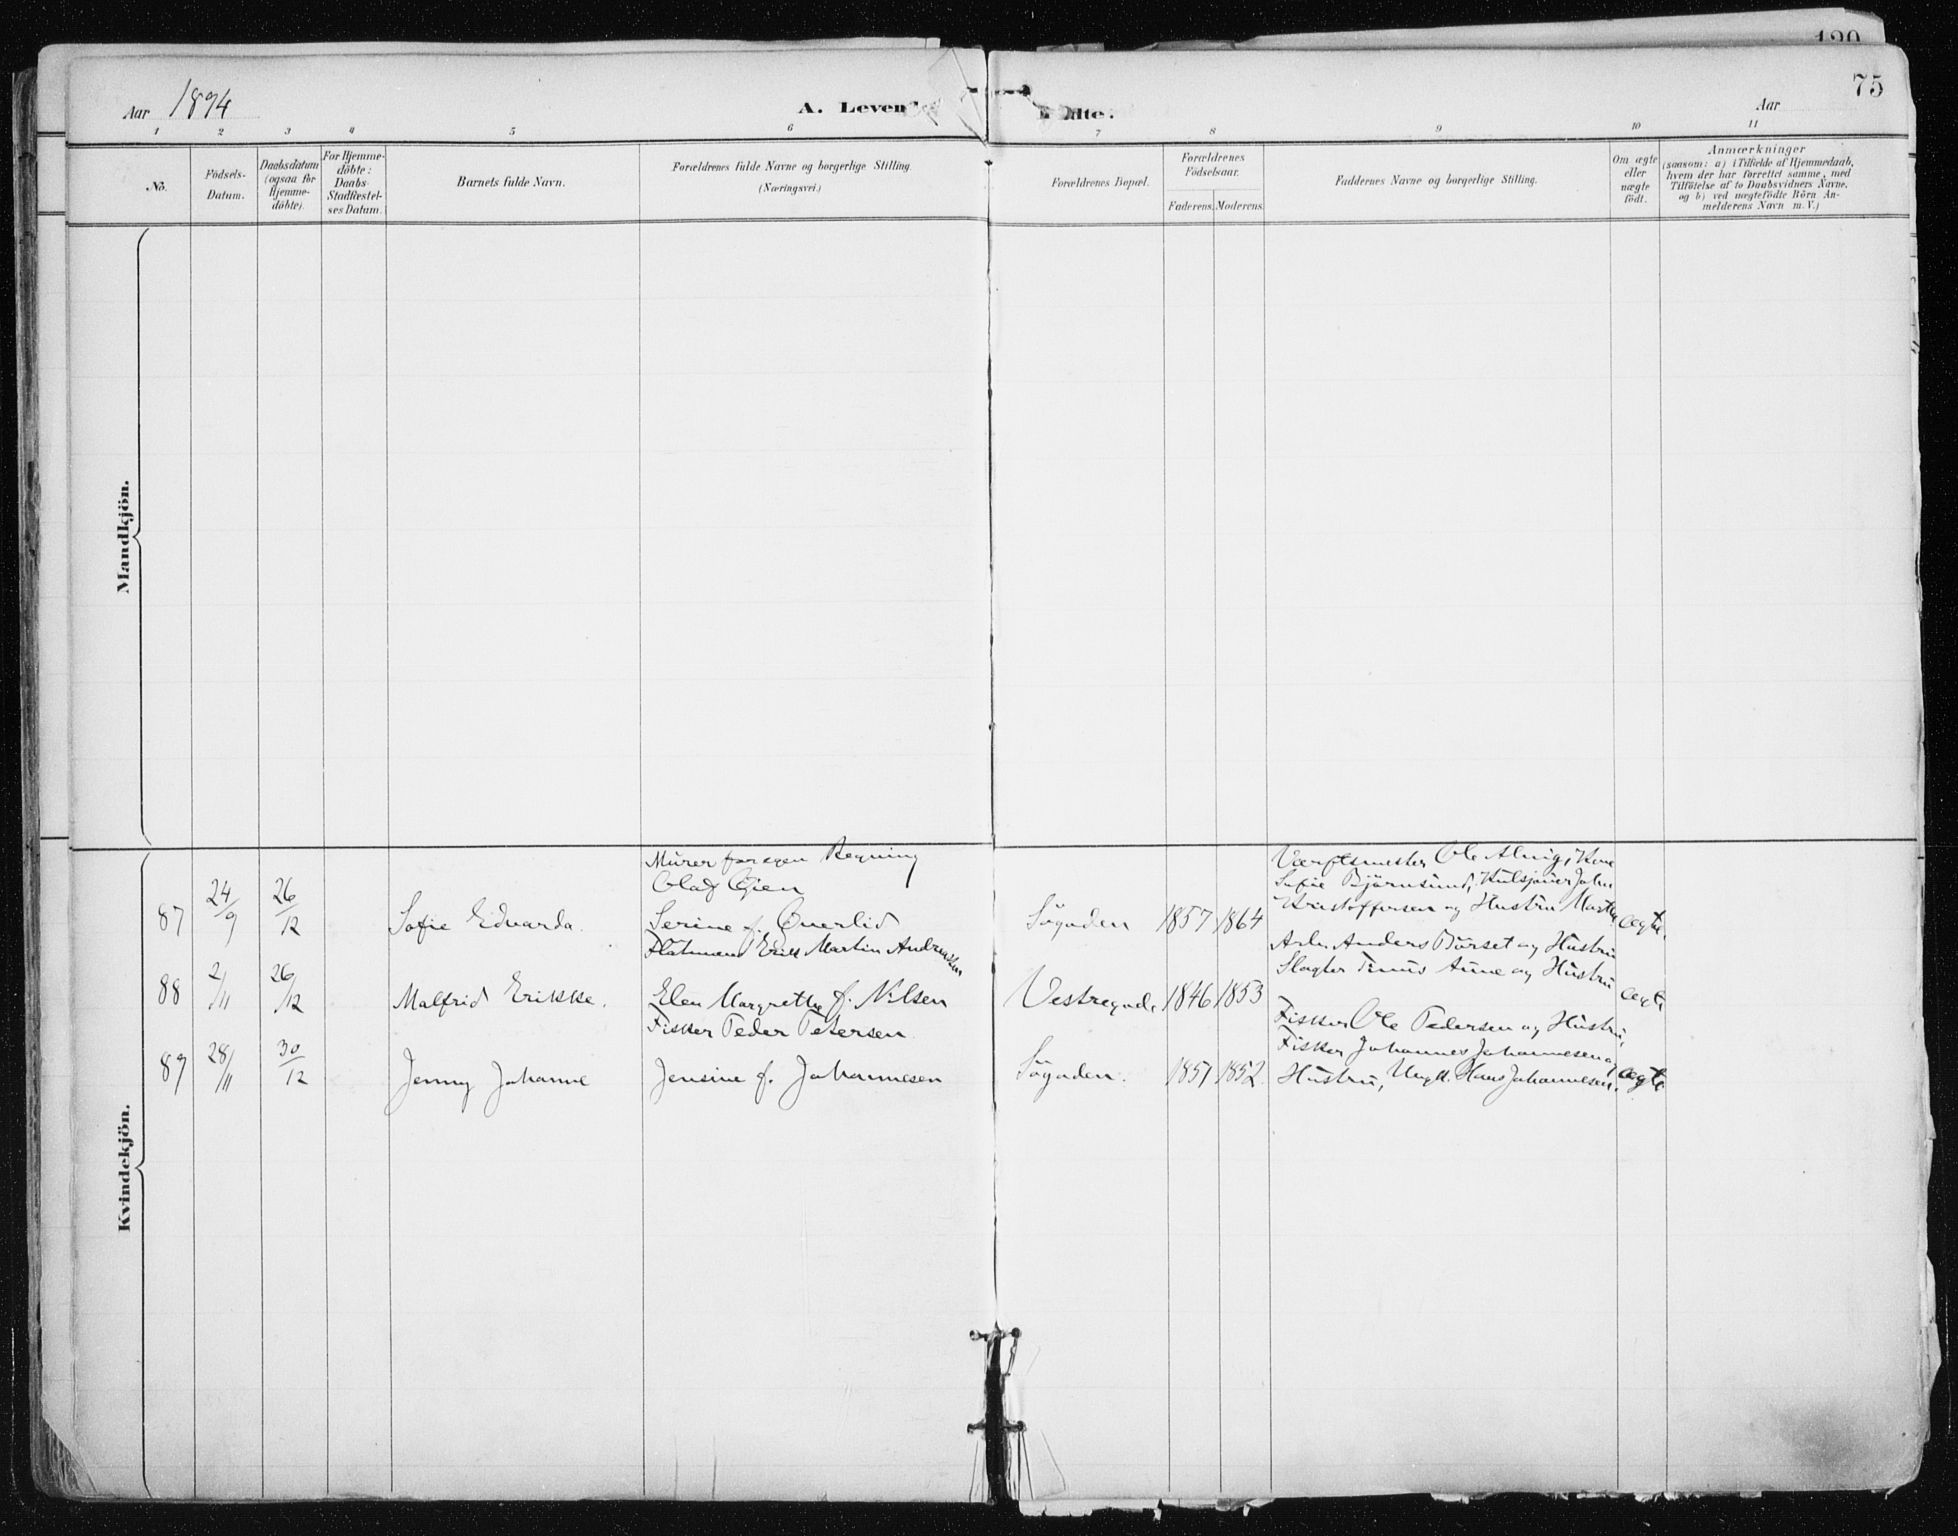 120
75
Aar 1894
A. Levende
födte.
Aar
1 2 3 4 5 6 7 8 9 10 11
No.
Födsels-
Datum.
Daabsdatum
(ogsaa för
Hjemme-
döbte).
For Hjemme-
döbte:
Daabs-
Stadfæstel-
ses Datum.
Barnets fulde Navn.
Forældrenes fulde Navne og borgerlige Stilling.
(Næringsvei.)
Forældrenes Bopæl.
Forældrenes
Födselsaar.
Faderens. Moderens.
Faddernes Navne og borgerlige Stilling.
Om ægte
eller
uægte
födt.
Anmærkninger
(saasom: a) i Tilfælde af Hjemmedaab,
hvem der har forrettet samme, med
Tilföielse af to Daabsvidners Navne,
og b) ved uægtefödte Börn An-
melderens Navn m. V.)
Mandkjön.
Kvindekjön.
87
24/9
26/12
Sofie Edvarda.
Murer for egen Regning
Olaf Öien
Serine f. Överlid
Sögaden
1857
1864
Værftsmester Ole Alvig, Kone
Sofie Björnsund, Kulsjouer John
Kristoffersen og Hustru Marthe
Arb. Anders Börset og Hustru
ægte.
88
2/11
26/12
Malfrid Erikke.
Erik Martin Andreassen
Elen Margrethe f. Nilsen
Vestregade
1846
1853
Slagter Tinus Aune og Hustru
ægte
89
28/11
30/12
Jenny Johanne
Fisker Peder Petersen
Jensine f. Johannesen
Sögaden.
1851
1852.
Fisker Ole Pedersen og Hustru,
Fisker Johannes Johannesen og
Hustru, Ungk. Hans Johannesen.
ægte